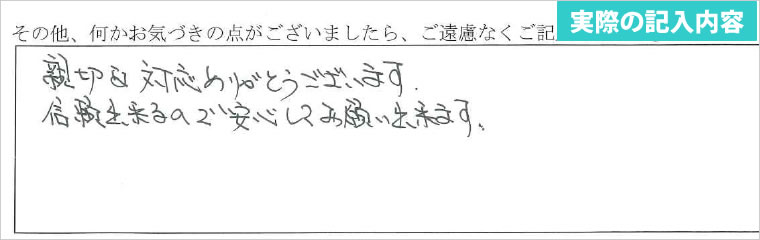 実際の記入内容
その他、何かお気づきの点がございましたら、ご遠慮なくご記
親切な対応ありがとうございます.
信頼出来るので安心してお願い出来ます。